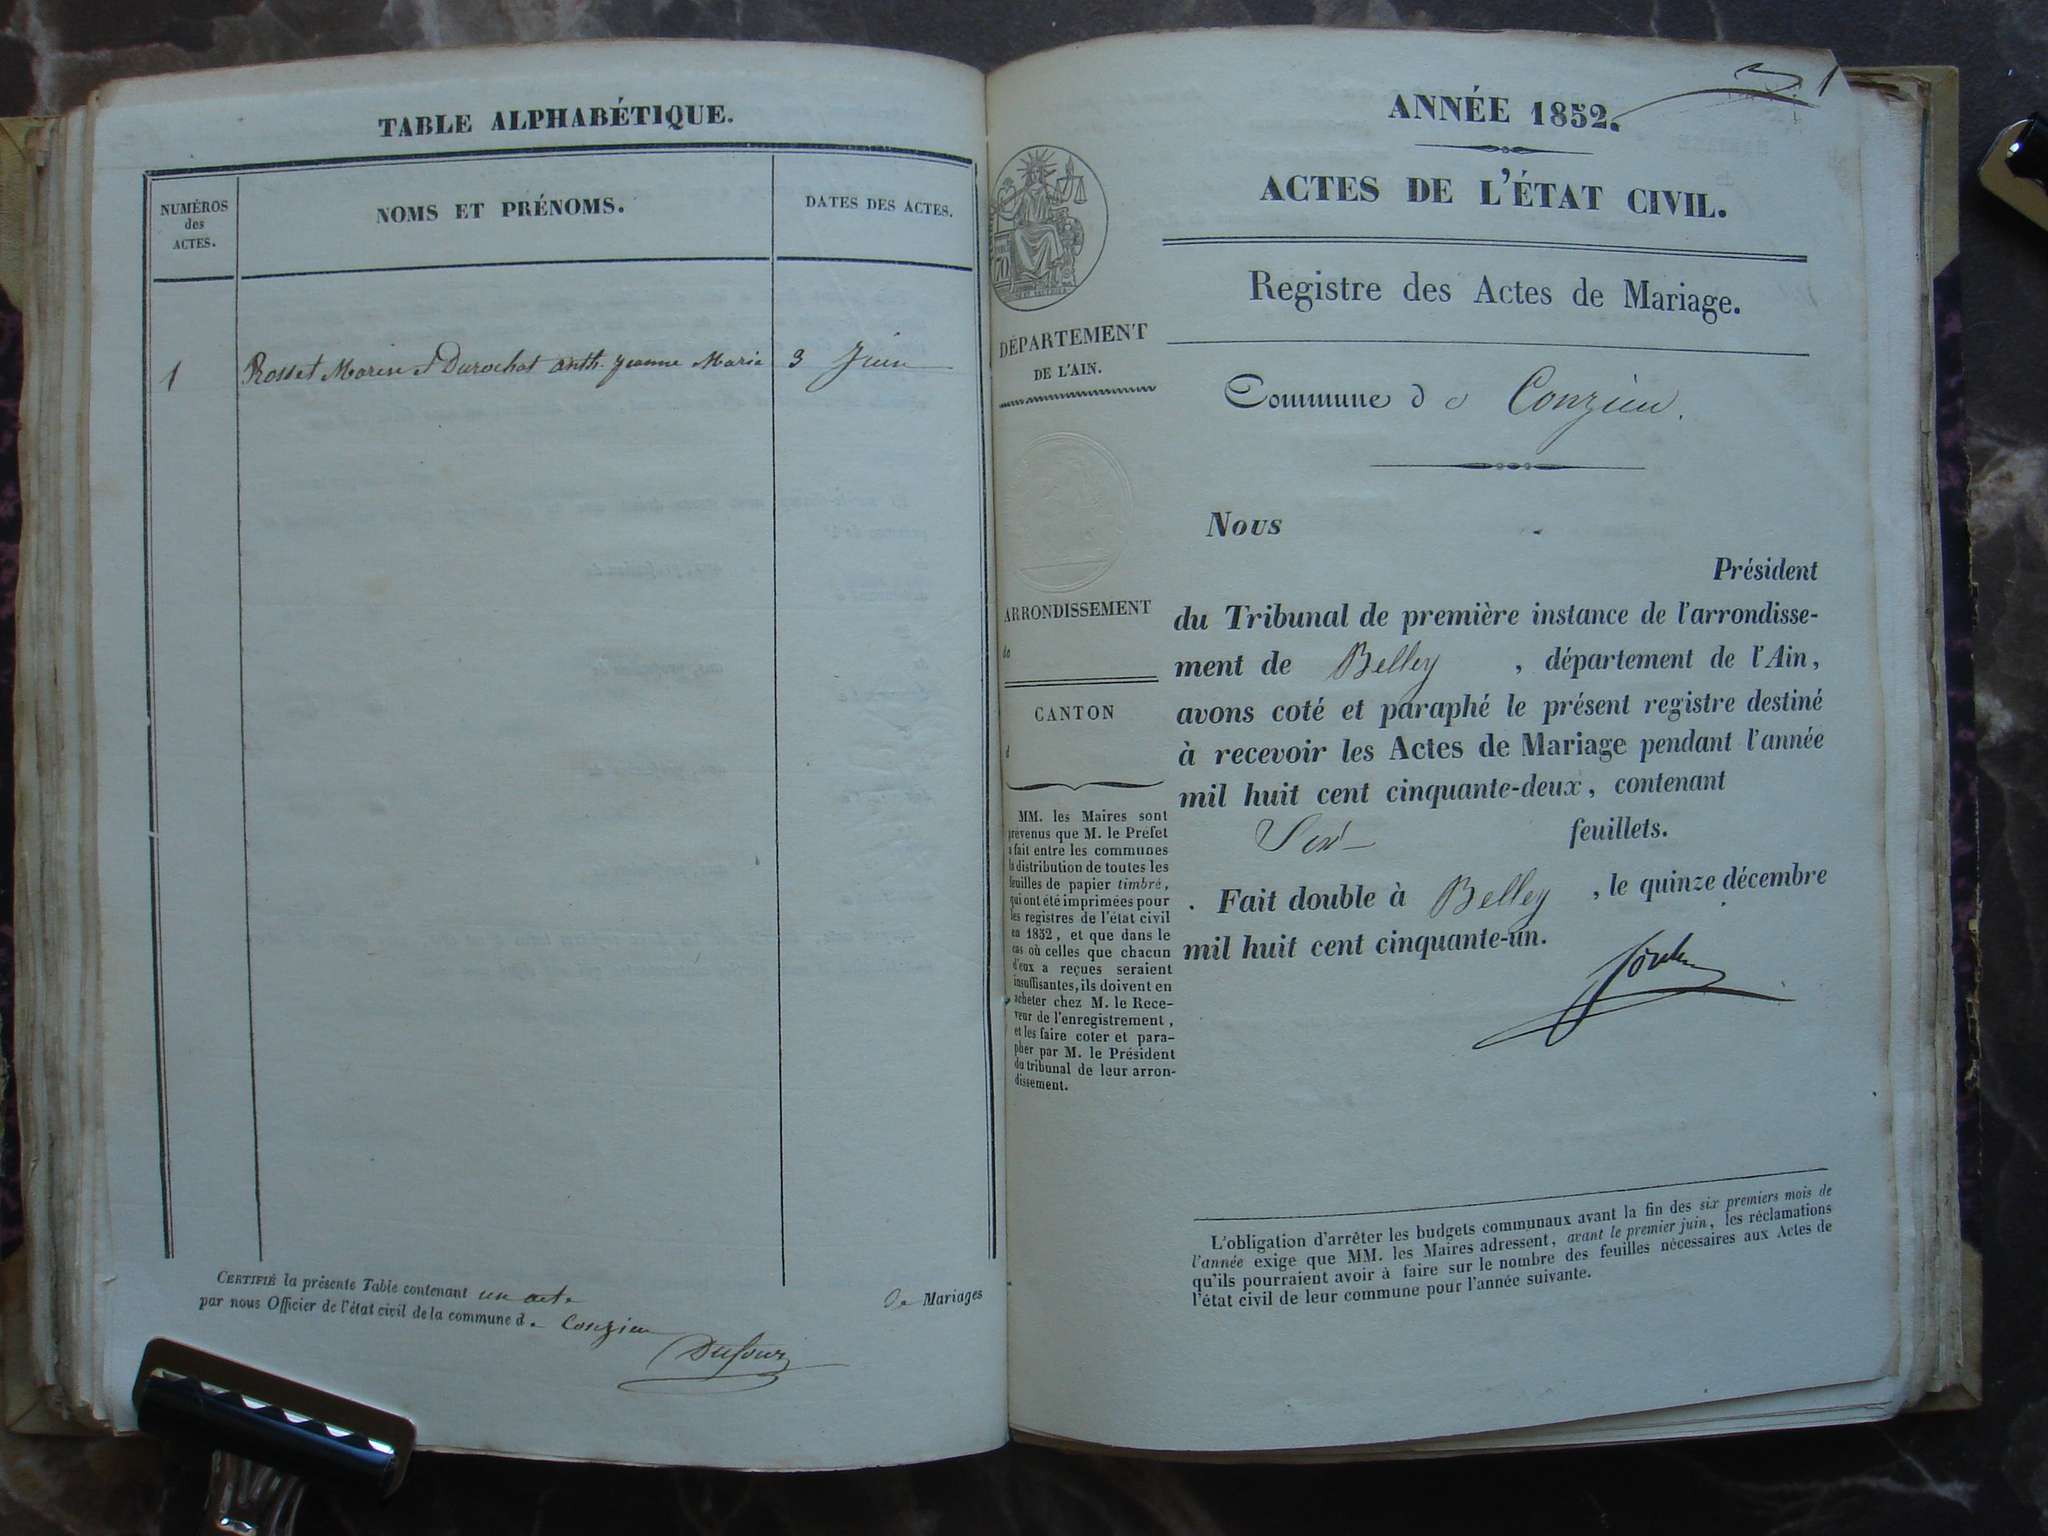 TABLE ALPHABÉTIQUE.
NUMÉROS
des
ACTES.
NOMS ET PRÉNOMS.
DATES DES ACTES.
1 Rosset Marin & Durochat anth. jeanne Marie 3 Juin
CERTIFIÉ la présente Table contenant un acte de Mariages
par nous Officier de l'état civil de la commune de Conzieu
Dufour
1
ANNÉE 1852.
ACTES DE L'ÉTAT CIVIL.
Registre des Actes de Mariage.
Commune de Conzieu.
DÉPARTEMENT
DE L'AIN.
ARRONDISSEMENT
de
CANTON
d
MM. les Maires sont
prévenus que M. le Préfet
a fait entre les communes
la distribution de toutes les
feuilles de papier timbré,
qui ont été imprimées pour
les registres de l'état civil
en 1852, et que dans le
cas où celles que chacun
d'eux a reçues seraient
insuffisantes, ils doivent en
acheter chez M. le Rece-
veur de l'enregistrement,
et les faire coter et para-
pher par M. le Président
du tribunal de leur arron-
dissement.
Nous
Président
du Tribunal de première instance de l'arrondisse-
ment de Belley, département de l'Ain,
avons coté et paraphé le présent registre destiné
à recevoir les Actes de Mariage pendant l'année
mil huit cent cinquante-deux, contenant
Six feuillets.
Fait double à Belley, le quinze décembre
mil huit cent cinquante-un.
L'obligation d'arrêter les budgets communaux avant la fin des six premiers mois de
l'année exige que MM. les Maires adressent, avant le premier juin, les réclamations
qu'ils pourraient avoir à faire sur le nombre des feuilles nécessaires aux Actes de
l'état civil de leur commune pour l'année suivante.